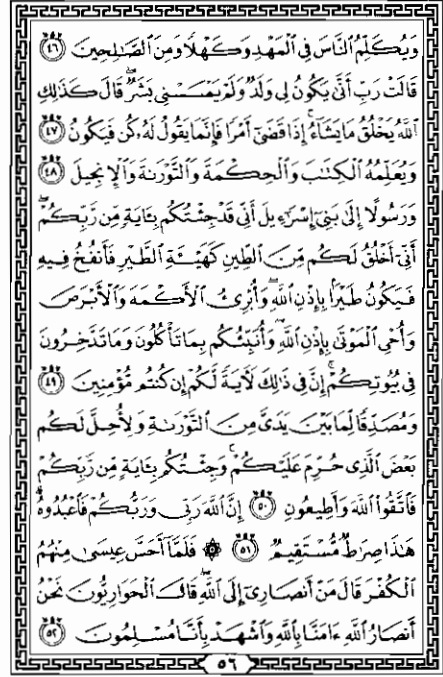 وَيُكَلِّمُ ٱلنَّاسَ فِى ٱلْمَهْدِ وَكَهْلًا وَمِنَ ٱلصَّٰلِحِينَ ٤٦
قَالَتْ رَبِّ أَنَّىٰ يَكُونُ لِى وَلَدٌ وَلَمْ يَمْسَسْنِى بَشَرٌ ۖ قَالَ كَذَٰلِكِ
ٱللَّهُ يَخْلُقُ مَا يَشَآءُ ۚ إِذَا قَضَىٰٓ أَمْرًا فَإِنَّمَا يَقُولُ لَهُۥ كُن فَيَكُونُ ٤٧
وَيُعَلِّمُهُ ٱلْكِتَٰبَ وَٱلْحِكْمَةَ وَٱلتَّوْرَىٰةَ وَٱلْإِنجِيلَ ٤٨
وَرَسُولًا إِلَىٰ بَنِىٓ إِسْرَٰٓءِيلَ أَنِّى قَدْ جِئْتُكُم بِـَٔايَةٍ مِّن رَّبِّكُمْ ۖ
أَنِّىٓ أَخْلُقُ لَكُم مِّنَ ٱلطِّينِ كَهَيْـَٔةِ ٱلطَّيْرِ فَأَنفُخُ فِيهِ
فَيَكُونُ طَيْرًۢا بِإِذْنِ ٱللَّهِ ۖ وَأُبْرِئُ ٱلْأَكْمَهَ وَٱلْأَبْرَصَ
وَأُحْىِ ٱلْمَوْتَىٰ بِإِذْنِ ٱللَّهِ ۖ وَأُنَبِّئُكُم بِمَا تَأْكُلُونَ وَمَا تَدَّخِرُونَ
فِى بُيُوتِكُمْ ۚ إِنَّ فِى ذَٰلِكَ لَـَٔايَةً لَّكُمْ إِن كُنتُم مُّؤْمِنِينَ ٤٩
وَمُصَدِّقًا لِّمَا بَيْنَ يَدَىَّ مِنَ ٱلتَّوْرَىٰةِ وَلِأُحِلَّ لَكُم
بَعْضَ ٱلَّذِى حُرِّمَ عَلَيْكُمْ ۚ وَجِئْتُكُم بِـَٔايَةٍ مِّن رَّبِّكُمْ
فَٱتَّقُوا۟ ٱللَّهَ وَأَطِيعُونِ ٥٠ إِنَّ ٱللَّهَ رَبِّى وَرَبُّكُمْ فَٱعْبُدُوهُ ۗ
هَٰذَا صِرَٰطٌ مُّسْتَقِيمٌ ٥١ ۞ فَلَمَّآ أَحَسَّ عِيسَىٰ مِنْهُمُ
ٱلْكُفْرَ قَالَ مَنْ أَنصَارِىٓ إِلَى ٱللَّهِ ۖ قَالَ ٱلْحَوَارِيُّونَ نَحْنُ
أَنصَارُ ٱللَّهِ ءَامَنَّا بِٱللَّهِ وَٱشْهَدْ بِأَنَّا مُسْلِمُونَ ٥٢
٥٦